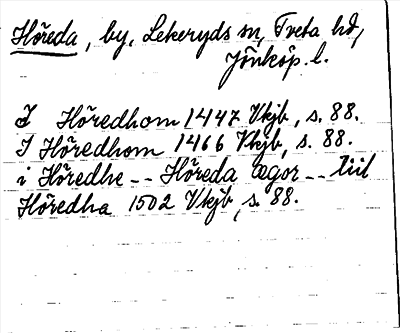 Höreda, by, Lekeryds sn, Tveta hd,
Jönköp. l.
I Höredhom 1447 Vkjb, s. 88.
I Höredhom 1466 Vkjb, s. 88.
i Höredhe -- Höreda ægor -- tiil
Höredha 1502 Vkjb, s. 88.